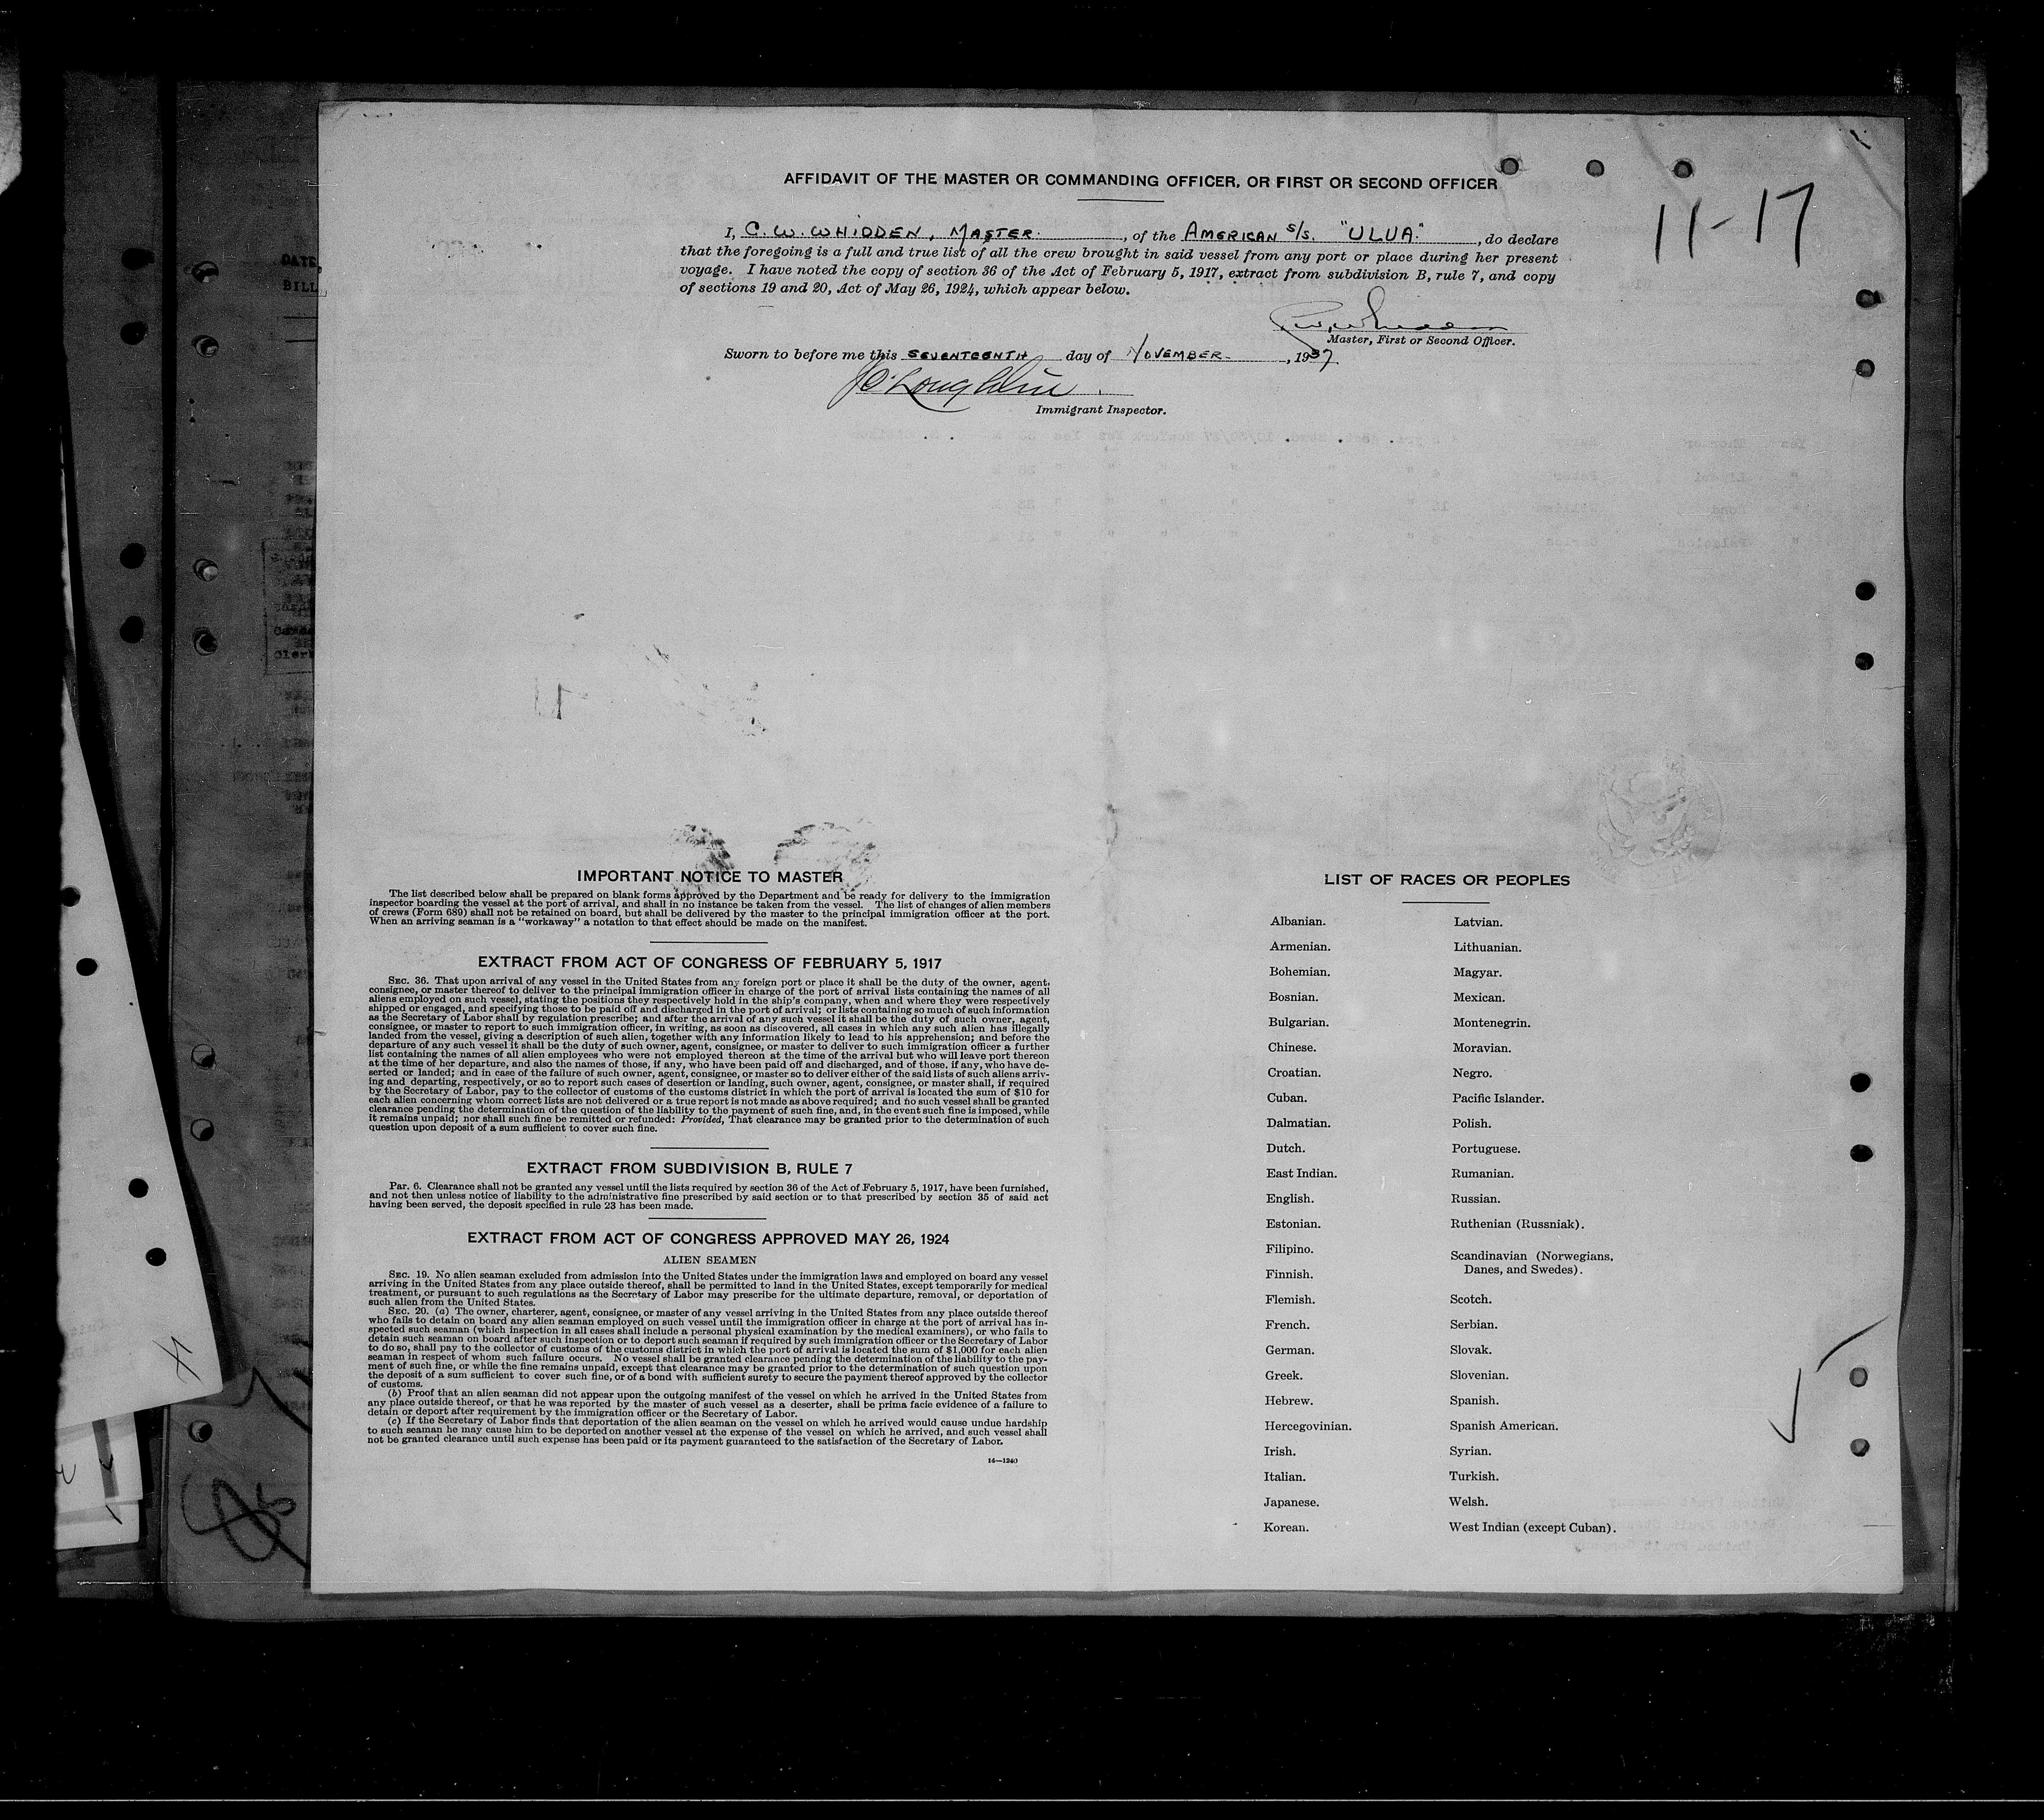 AFFIDAVIT OF THE MASTER OR COMMANDING OFFICER, OR FIRST OR SECOND OFFICER
11-17
I, C. W. WHIDDEN, MASTER. , of the AMERICAN S/S. "ULUA." , do declare
that the foregoing is a full and true list of all the crew brought in said vessel from any port or place during her present
voyage. I have noted the copy of section 36 of the Act of February 5, 1917, extract from subdivision B, rule 7, and copy
of sections 19 and 20, Act of May 26, 1924, which appear below.
C. W. Whidden
Master, First or Second Officer.
Sworn to before me this SEVENTEENTH day of NOVEMBER , 1937
O'Loughlin
Immigrant Inspector.
DATE,
BILL
IMPORTANT NOTICE TO MASTER
The list described below shall be prepared on blank forms approved by the Department and be ready for delivery to the immigration
inspector boarding the vessel at the port of arrival, and shall in no instance be taken from the vessel. The list of changes of alien members
of crews (Form 689) shall not be retained on board, but shall be delivered by the master to the principal immigration officer at the port.
When an arriving seaman is a "workaway" a notation to that effect should be made on the manifest.
EXTRACT FROM ACT OF CONGRESS OF FEBRUARY 5, 1917
SEC. 36. That upon arrival of any vessel in the United States from any foreign port or place it shall be the duty of the owner, agent,
consignee, or master thereof to deliver to the principal immigration officer in charge of the port of arrival lists containing the names of all
aliens employed on such vessel, stating the positions they respectively hold in the ship's company, when and where they were respectively
shipped or engaged, and specifying those to be paid off and discharged in the port of arrival; or lists containing so much of such information
as the Secretary of Labor shall by regulation prescribe; and after the arrival of any such vessel it shall be the duty of such owner, agent,
consignee, or master to report to such immigration officer, in writing, as soon as discovered, all cases in which any such alien has illegally
landed from the vessel, giving a description of such alien, together with any information likely to lead to his apprehension; and before the
departure of any such vessel it shall be the duty of such owner, agent, consignee, or master to deliver to such immigration officer a further
list containing the names of all alien employees who were not employed thereon at the time of the arrival but who will leave port thereon
at the time of her departure, and also the names of those, if any, who have been paid off and discharged, and of those, if any, who have de-
serted or landed; and in case of the failure of such owner, agent, consignee, or master so to deliver either of the said lists of such aliens arriv-
ing and departing, respectively, or so to report such cases of desertion or landing, such owner, agent, consignee, or master shall, if required
by the Secretary of Labor, pay to the collector of customs of the customs district in which the port of arrival is located the sum of $10 for
each alien concerning whom correct lists are not delivered or a true report is not made as above required; and no such vessel shall be granted
clearance pending the determination of the question of the liability to the payment of such fine, and, in the event such fine is imposed, while
it remains unpaid; nor shall such fine be remitted or refunded: Provided, That clearance may be granted prior to the determination of such
question upon deposit of a sum sufficient to cover such fine.
EXTRACT FROM SUBDIVISION B, RULE 7
PAR. 6. Clearance shall not be granted any vessel until the lists required by section 36 of the Act of February 5, 1917, have been furnished,
and not then unless notice of liability to the administrative fine prescribed by said section or to that prescribed by section 35 of said act
having been served, the deposit specified in rule 23 has been made.
EXTRACT FROM ACT OF CONGRESS APPROVED MAY 26, 1924
ALIEN SEAMEN
SEC. 19. No alien seaman excluded from admission into the United States under the immigration laws and employed on board any vessel
arriving in the United States from any place outside thereof, shall be permitted to land in the United States, except temporarily for medical
treatment, or pursuant to such regulations as the Secretary of Labor may prescribe for the ultimate departure, removal, or deportation of
such alien from the United States.
SEC. 20. (a) The owner, charterer, agent, consignee, or master of any vessel arriving in the United States from any place outside thereof
who fails to detain on board any alien seaman employed on such vessel until the immigration officer in charge at the port of arrival has in-
spected such seaman (which inspection in all cases shall include a personal physical examination by the medical examiners), or who fails to
detain such seaman on board after such inspection or to deport such seaman if required by such immigration officer or the Secretary of Labor
to do so, shall pay to the collector of customs of the customs district in which the port of arrival is located the sum of $1,000 for each alien
seaman in respect of whom such failure occurs. No vessel shall be granted clearance pending the determination of the liability to the pay-
ment of such fine, or while the fine remains unpaid, except that clearance may be granted prior to the determination of such question upon
the deposit of a sum sufficient to cover such fine, or of a bond with sufficient surety to secure the payment thereof approved by the collector
of customs.
(b) Proof that an alien seaman did not appear upon the outgoing manifest of the vessel on which he arrived in the United States from
any place outside thereof, or that he was reported by the master of such vessel as a deserter, shall be prima facie evidence of a failure to
detain or deport after requirement by the immigration officer or the Secretary of Labor.
(c) If the Secretary of Labor finds that deportation of the alien seaman on the vessel on which he arrived would cause undue hardship
to such seaman he may cause him to be deported on another vessel at the expense of the vessel on which he arrived, and such vessel shall
not be granted clearance until such expense has been paid or its payment guaranteed to the satisfaction of the Secretary of Labor.
14—1240
LIST OF RACES OR PEOPLES
Albanian.
Armenian.
Bohemian.
Bosnian.
Bulgarian.
Chinese.
Croatian.
Cuban.
Dalmatian.
Dutch.
East Indian.
English.
Estonian.
Filipino.
Finnish.
Flemish.
French.
German.
Greek.
Hebrew.
Hercegovinian.
Irish.
Italian.
Japanese.
Korean.
Latvian.
Lithuanian.
Magyar.
Mexican.
Montenegrin.
Moravian.
Negro.
Pacific Islander.
Polish.
Portuguese.
Rumanian.
Russian.
Ruthenian (Russniak).
Scandinavian (Norwegians,
Danes, and Swedes).
Scotch.
Serbian.
Slovak.
Slovenian.
Spanish.
Spanish American.
Syrian.
Turkish.
Welsh.
West Indian (except Cuban).